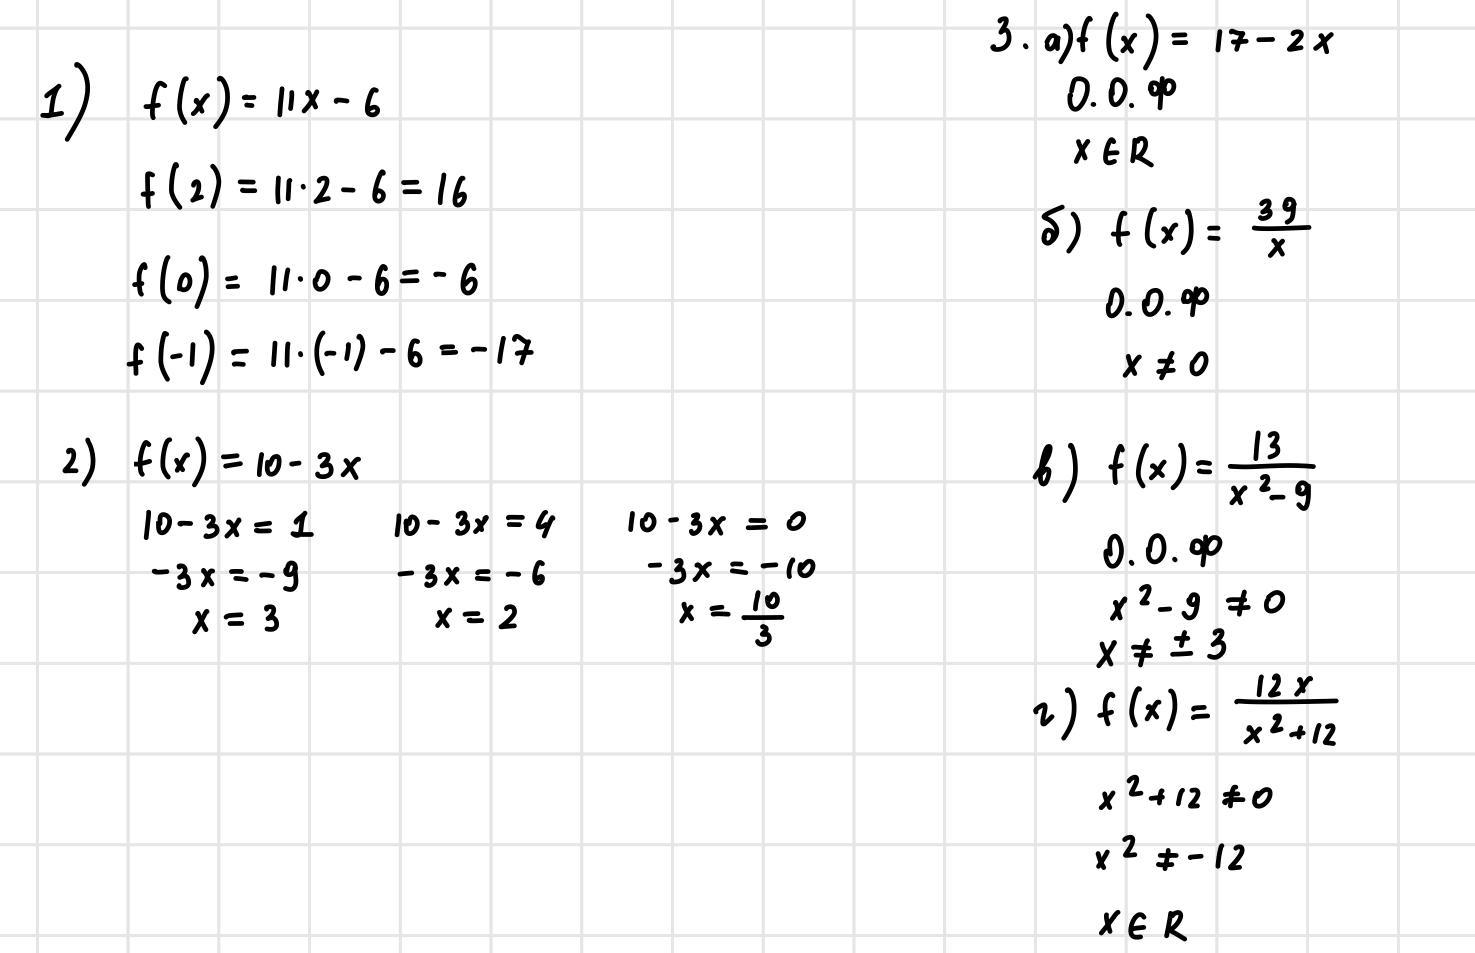 1) f(x) = 11x - 6
f(2) = 11·2 - 6 = 16
f(0) = 11·0 - 6 = -6
f(-1) = 11·(-1) - 6 = -17
2) f(x) = 10 - 3x
10 - 3x = 1
-3x = -9
x = 3
10 - 3x = 4
-3x = -6
x = 2
10 - 3x = 0
-3x = -10
x = 10/3
3. а) f(x) = 17 - 2x
О.О.Ф
x ∈ R
б) f(x) = 39/x
О.О.Ф
x ≠ 0
в) f(x) = 13/(x² - 9)
О.О.Ф
x² - 9 ≠ 0
x ≠ ± 3
г) f(x) = 12x/(x² + 12)
x² + 12 ≠ 0
x² ≠ -12
x ∈ R